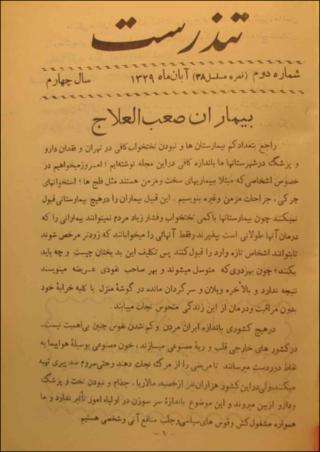 تندرست
شماره دوم (نمره مسلسل ۳۸) آبان ماه ۱۳۲۹ سال چهارم
بیماران صعب العلاج
راجع بتعداد کم بیمارستان ها و نبودن تختخواب کافی در تهران و فقدان دارو
و پزشک در شهرستانها ما باندازه کافی در این مجله نوشته‌ایم ؛ امروز میخواهیم در
خصوص اشخاصی که مبتلا به بیماریهای سخت و مزمن هستند مثل فلج ها ؛ استخوانهای
چرکی، جراحات مزمن و غیره بنویسیم . این قبیل بیماران را در هیچ بیمارستانی قبول
نمیکنند چون بیمارستانها با کمی تختخواب و فشار زیاد مردم نمیتوانند بیمارانی را که
درمان آنها طولانی است بپذیرند و فقط آنهائی را میخوابانند که زودتر مرخص شوند
تا بتوانند اشخاص تازه وارد را قبول کنند پس تکلیف این بدبختان چیست و چه باید
بکنند؛ چون بهر دری که متوسل میشوند و بهر صاحب نفوذی عریضه مینویسند
نتیجه ندارد و بالاخره ویلان و سرگردان مانده در گوشه منزل و یا کلبه خرابهٔ خود
بدون مراقبت و درمان از این زندگی منحوس نجات مییابند.
در هیچ کشوری باندازه ایران مردن و کم شدن نفوس چنین بی‌اهمیت نیست.
در کشور های خارجی قلب و ریهٔ مصنوعی میسازند، خون مصنوعی بوسیلهٔ هواپیما به
نقاط دوردست میرسانند تا مریضی را از مرگ نجات دهند و حتی سروم ضد پیری تهیه
میکنند ولی در این کشور هزاران نفر از حصبه، مالاریا، جذام و نبودن تخت و پزشگ
و دارو از بین میروند و این موضوع باندازهٔ سر سوزن در اولیاء امور تأثیر ندارد و ما
همواره مشغول کش و قوس های سیاسی و جلب منافع آنی و شخصی هستیم
- ۱ -